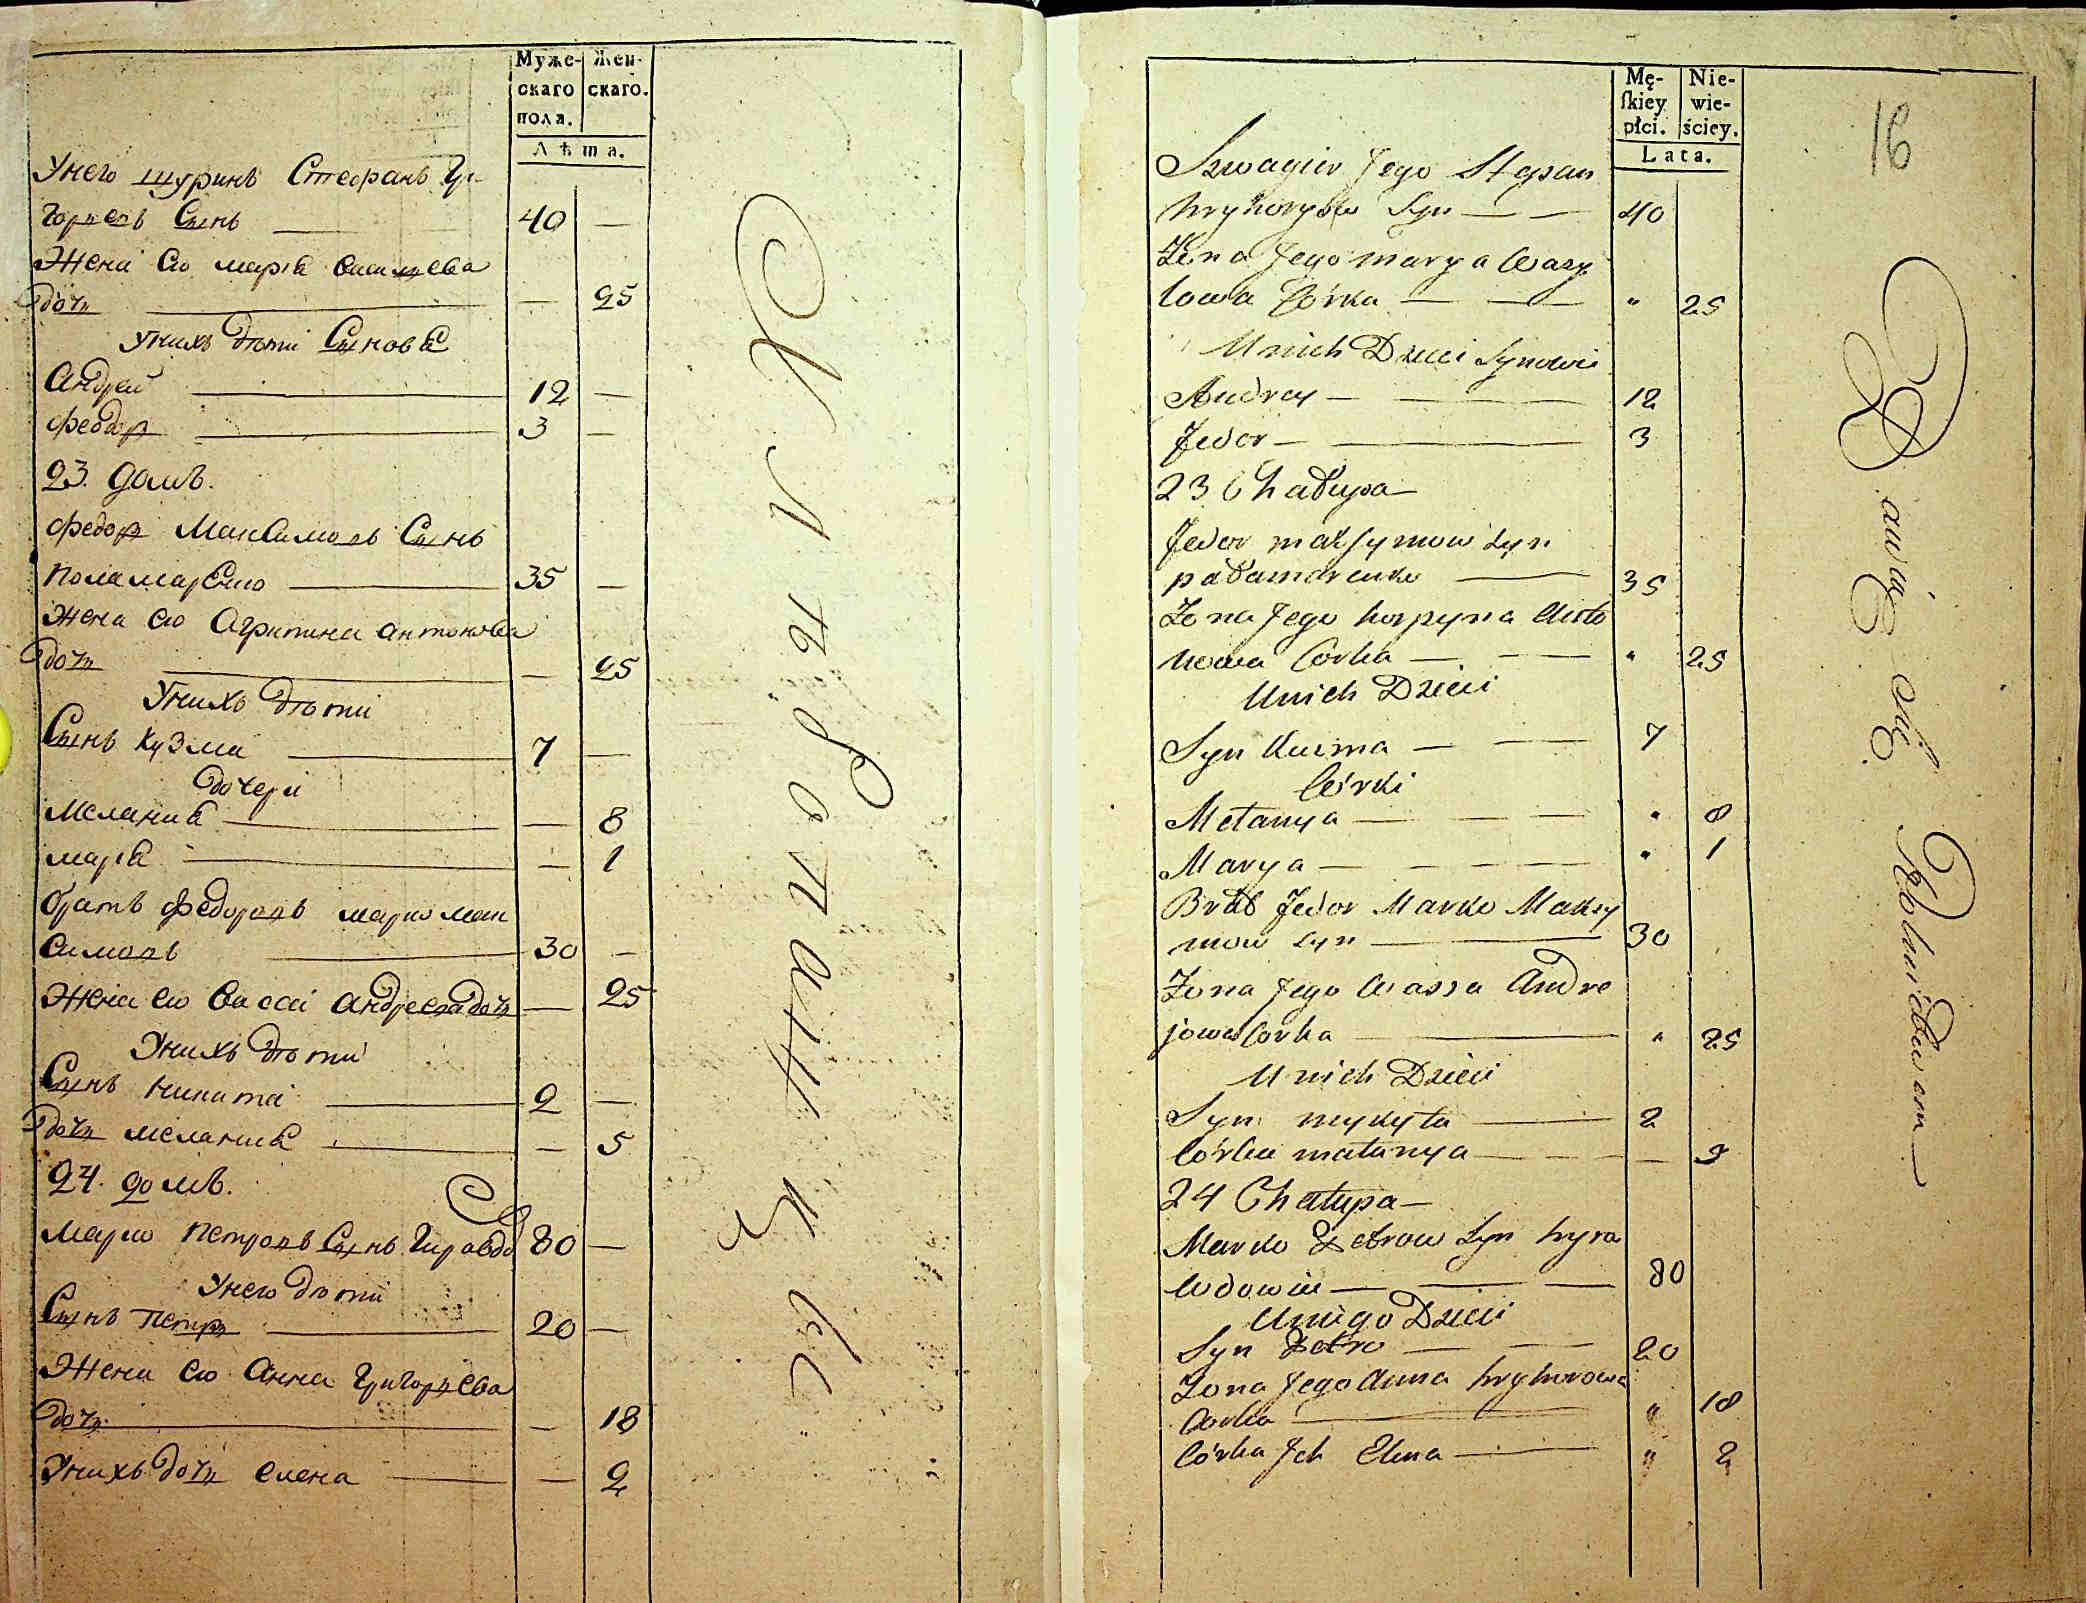 Муже- Жен-
скаго скаго.
пола.
Лѣта.
Унего шуринъ Стефанъ Гри-
горьевъ Сынъ — 40 —
Жена его марія васильева
дочь — — 25
Унихъ дѣти Сыновья
Андрей — 12 —
Федоръ — 3 —
23. домъ.
Федоръ Максимовъ Сынъ
Паламаренко — 35 —
Жена его Агрипина антонова
дочь — — 25
Унихъ дѣти
Сынъ Кузма — 7 —
дочери
Мелания — — 8
марія — — 1
братъ Федоровъ марко мак
симовъ — 30 —
Жена его васса андреева дочь — 25
Унихъ дѣти
Сынъ никита — 2 —
дочь мелания — — 5
24. домъ.
Марко Петровъ Сынъ 80 —
Унего дѣти
Сынъ Петръ — 20 —
Жена его Анна Григорьева
дочь — — 18
Унихъ дочь елена — — 2
Mę- Nie-
skiey wie-
płci. ściey.
Lata.
16
Szwagier Jego Stepan
hryhoryow Syn — — 40
Żona Jego marya Wasy
lowa Córka — — " 25
Unich Dzieci Synowie
Andrey — — 12
Fedor — — 3
23 Chałupa —
Fedor maxymow syn
pałamarenko — 35
Żona Jego horpyna Anto
nowa Corka — — " 25
Unich Dzieci
Syn Kuzma — — 7
Córki
Mełanya — — — " 8
Marya — — — — " 1
Brat Fedor Marko Maksy
mow syn — — 30
Żona Jego Wassa Andre
jowa Corka — — " 25
Unich Dzieci
Syn mykyta — 2
Córka małanya — — — —
24 Chałupa —
Marko Petrow syn hyra
— — — 80
Uniego Dzieci
Syn Petro — — 20
Żona Jego Anna hryhorowa
Corka — " 18
Córka Ich Elena — " 2